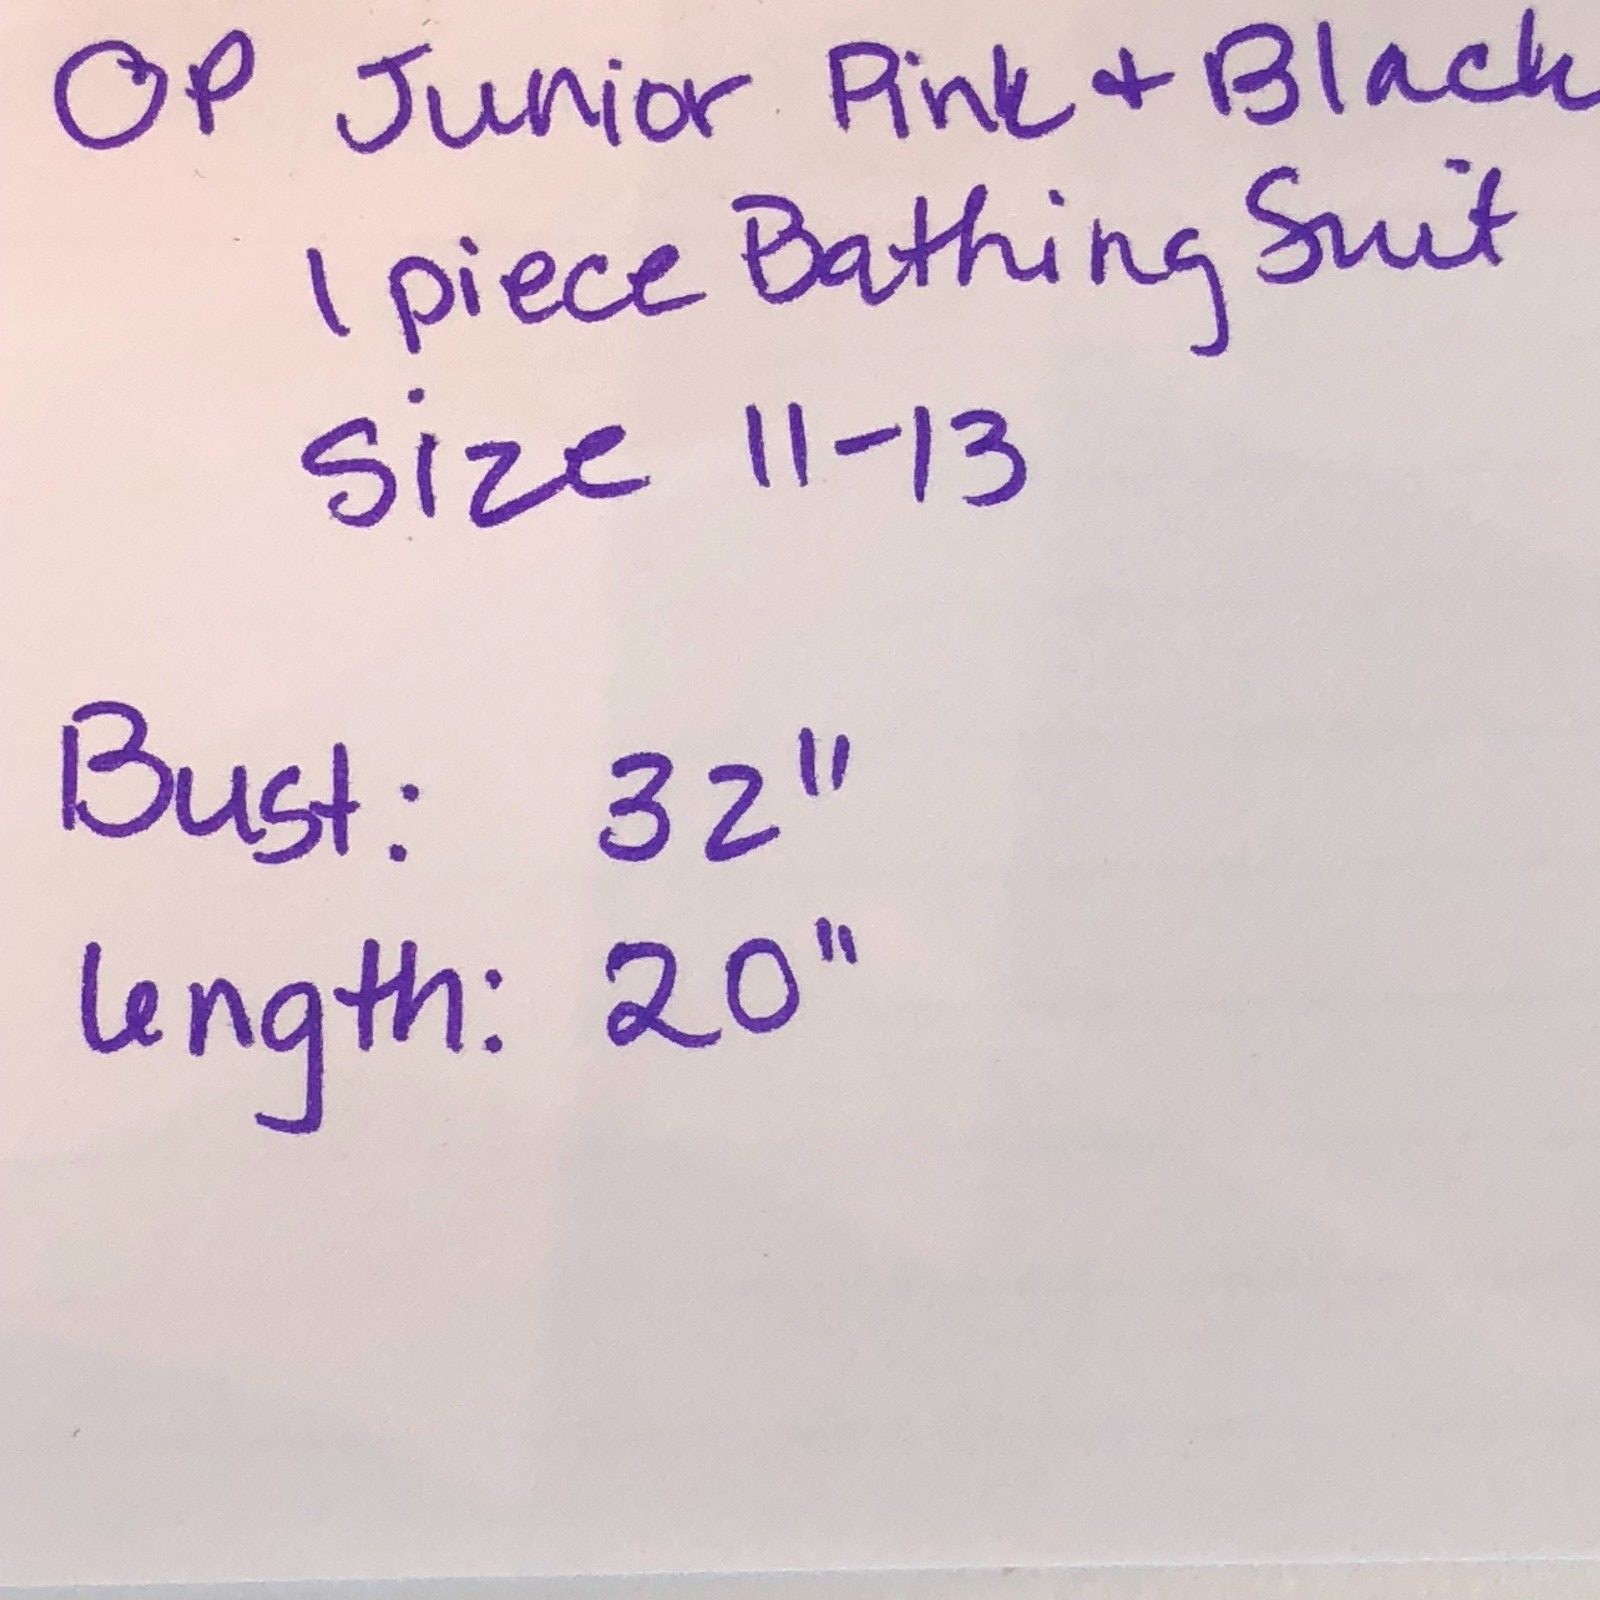 OP Junior Pink + Black
1 piece Bathing Suit
Size 11-13
Bust: 32"
length: 20"